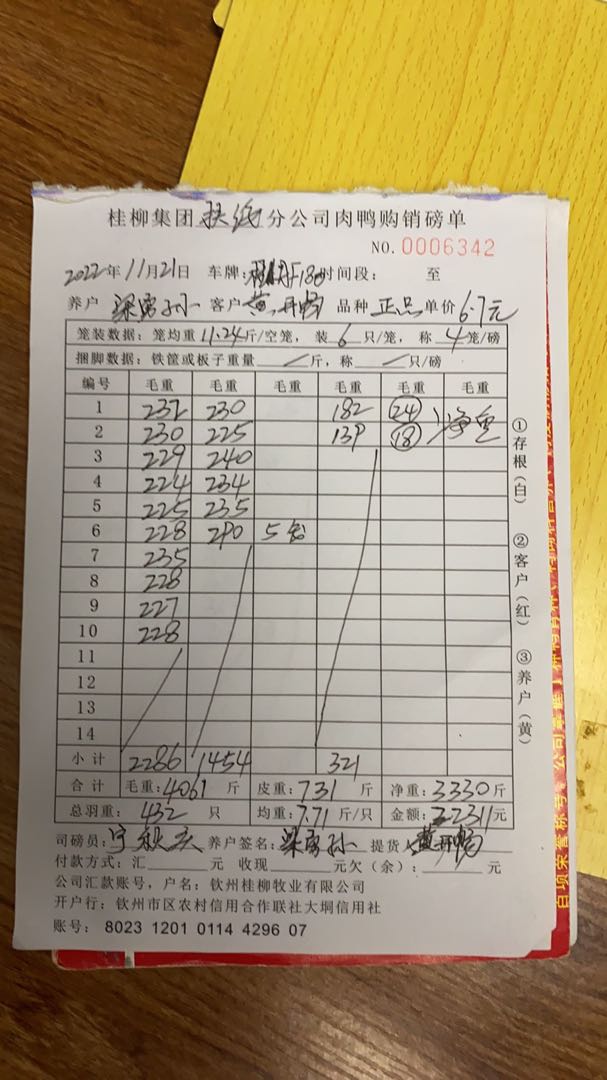 桂柳集团扶绥分公司肉鸭购销磅单
NO.0006342
2022年11月21日 车牌: 时间段: 至
养户 梁富孙 客户 黄开畅 品种 正品 单价 6.7元
笼装数据: 笼均重11.24斤/空笼, 装6只/笼, 称4笼/磅
捆脚数据: 铁筐或板子重量 / 斤, 称 / 只/磅
编号 毛重 毛重 毛重 毛重 毛重 毛重
1 232 230 182 24 净重
2 230 225 139 18
3 229 240
4 224 234
5 225 235
6 228 290 5笼
7 235
8 228
9 227
10 228
11
12
13
14
小计 2286 1454 321
合计 毛重:4061斤 皮重:731斤 净重:3330斤
总羽重: 432只 均重:7.71斤/只 金额:22311元
司磅员: 养户签名:梁富孙 提货人 黄开畅
付款方式:汇 元 收现 元欠(余): 元
公司汇款账号,户名:钦州桂柳牧业有限公司
开户行:钦州市区农村信用合作联社大垌信用社
账号: 8023 1201 0114 4296 07
①存根(白)
②客户(红)
③养户(黄)